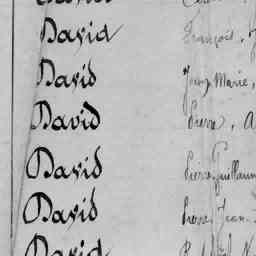 David François,
David Jean Marie,
David Pierre, A
David Pierre Guillaum
David Pierre Jean
David